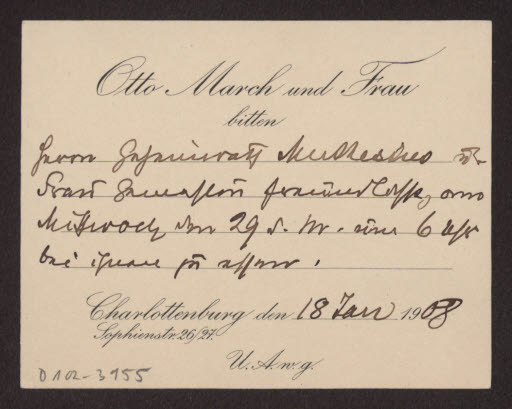 Otto March und Frau
bitten
Herrn Geheimrath Muthesius u.
Frau Gemahlin freundlichst, am
Mittwoch den 29 d. M. um 6 Uhr
bei ihnen zu essen.
Charlottenburg den 18 Jan 1908
Sophienstr. 26/27.
U. A. w. g.
D 102-3955